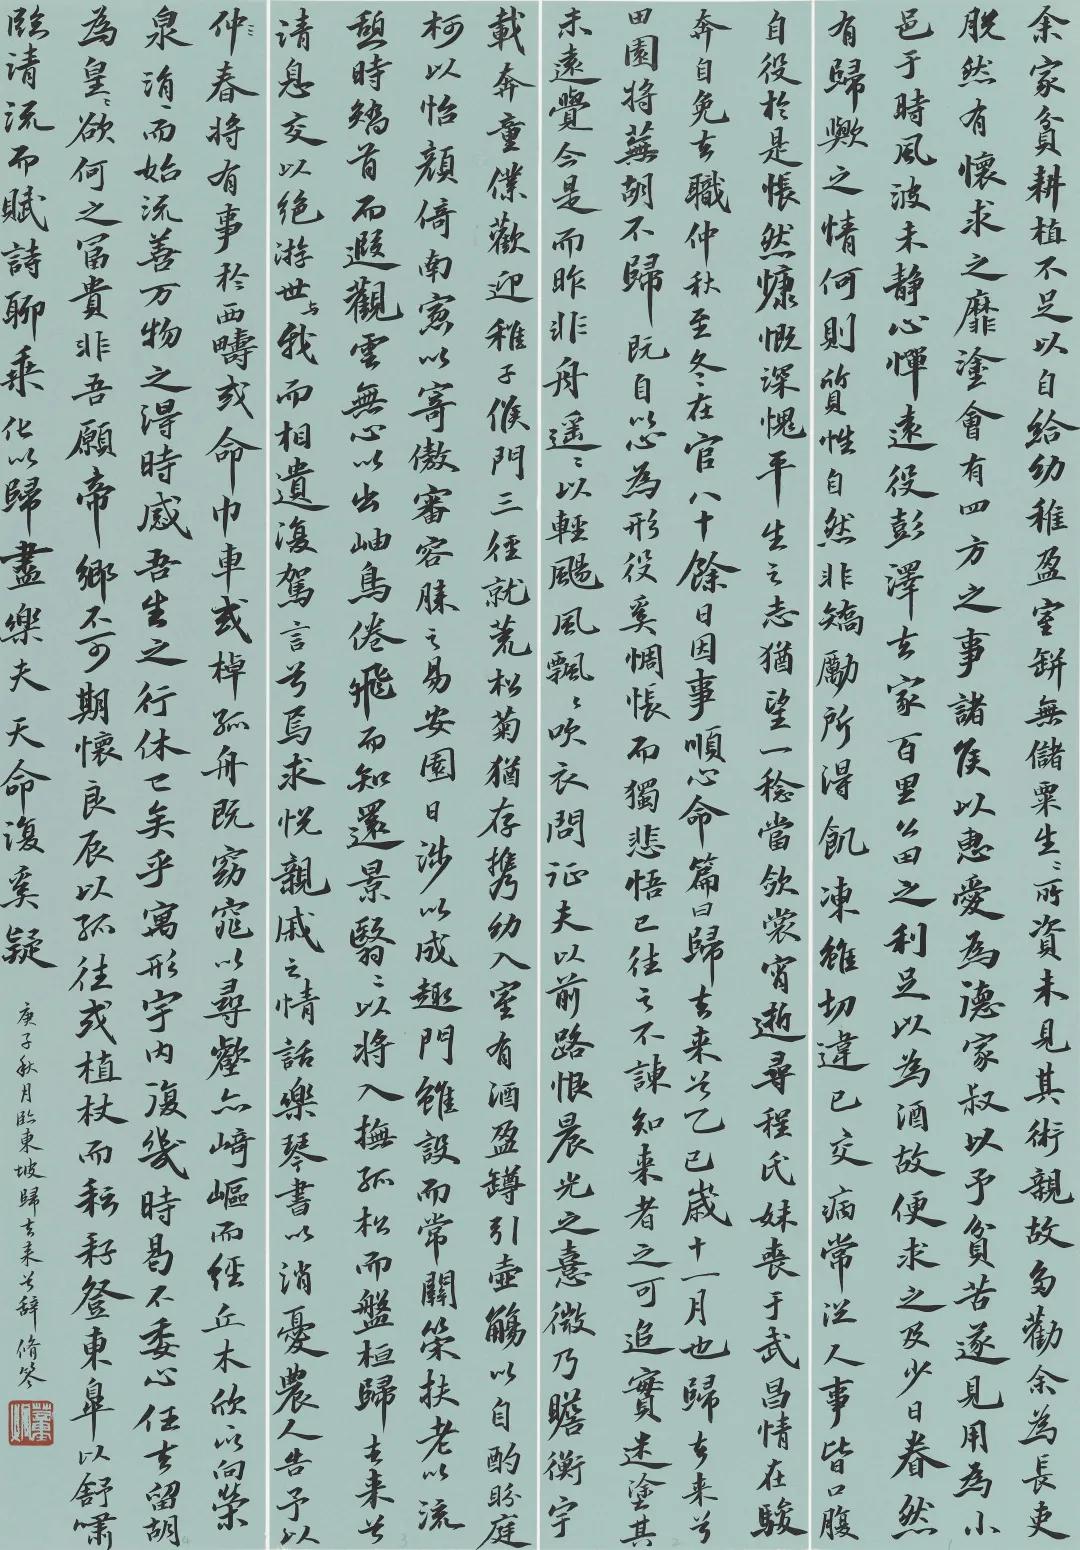 余家貧耕植不足以自給幼稚盈室缾無儲粟生〻所資未見其術親故多勸余為長吏
脫然有懷求之靡塗會有四方之事諸侯以惠愛為德家叔以予貧苦遂見用為小
邑于時風波未靜心憚遠役彭澤去家百里公田之利足以為酒故便求之及少日眷然
有歸歟之情何則質性自然非矯勵所得飢凍雖切違已交病常從人事皆口腹
自役於是悵然慷慨深愧平生之志猶望一稔當斂裳宵逝尋程氏妹喪于武昌情在駿
奔自免去職仲秋至冬在官八十餘日因事順心命篇曰歸去来兮乙巳歲十一月也歸去来兮
田園將蕪胡不歸既自以心為形役奚惆悵而獨悲悟已往之不諫知来者之可追實迷塗其
未遠覺今是而昨非舟遥〻以輕颺風飄〻吹衣問征夫以前路恨晨光之憙微乃瞻衡宇
載奔童僕歡迎稚子候門三徑就荒松菊猶存携幼入室有酒盈罇引壺觴以自酌眄庭
柯以怡顏倚南窓以寄傲審容膝之易安園日涉以成趣門雖設而常關策扶老以流
憩時矯首而遐觀雲無心以出岫鳥倦飛而知還景翳〻以將入撫孤松而盤桓歸去来兮
請息交以絕游世与我而相遺復駕言兮焉求悅親戚之情話樂琴書以消憂農人告予以
仲春將有事於西疇或命巾車或棹孤舟既窈窕以尋壑亦崎嶇而經丘木欣〻以向榮
泉涓〻而始流善万物之得時感吾生之行休已矣乎寓形宇内復幾時曷不委心任去留胡
為皇〻欲何之富貴非吾願帝鄉不可期懷良辰以孤往或植杖而耘耔登東皐以舒嘯
臨清流而賦詩聊乘化以歸盡樂夫天命復奚疑
庚子秋月臨東坡歸去来兮辞